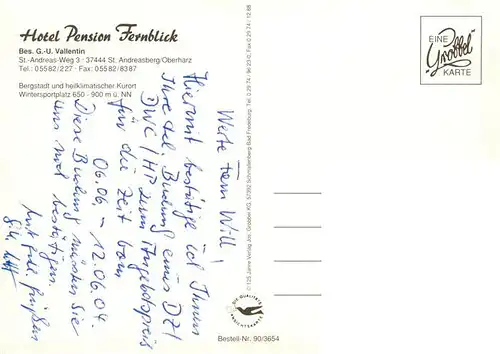 Hotel Pension Fernblick
Bes. G.-U. Vallentin
St.-Andreas-Weg 3 · 37444 St. Andreasberg/Oberharz
Tel.: 05582/227 · Fax: 05582/8387
Bergstadt und heilklimatischer Kurort
Wintersportplatz 650 - 900 m ü. NN
Werte Fam Will,
Hiermit bestätige ich Ihnen
Ihre tel. Buchung eines DZ/
DWC/HP zum Angebotspreis
für die Zeit vom
06.06 – 12.06.04.
Diese Buchung müssten Sie
uns mal bestätigen.
Mit frdl grüßen
© 125 Jahre Verlag Jm. Grobbel KG, 57392 Schmallenberg-Bad Fredeburg, Tel. 0 29 74 / 96 23 0, Fax 0 29 74 / 12 88
EINE
"Grobbel"
KARTE
DIE QUALITÄTS
ANSICHTSKARTE
Bestell-Nr. 90/3654